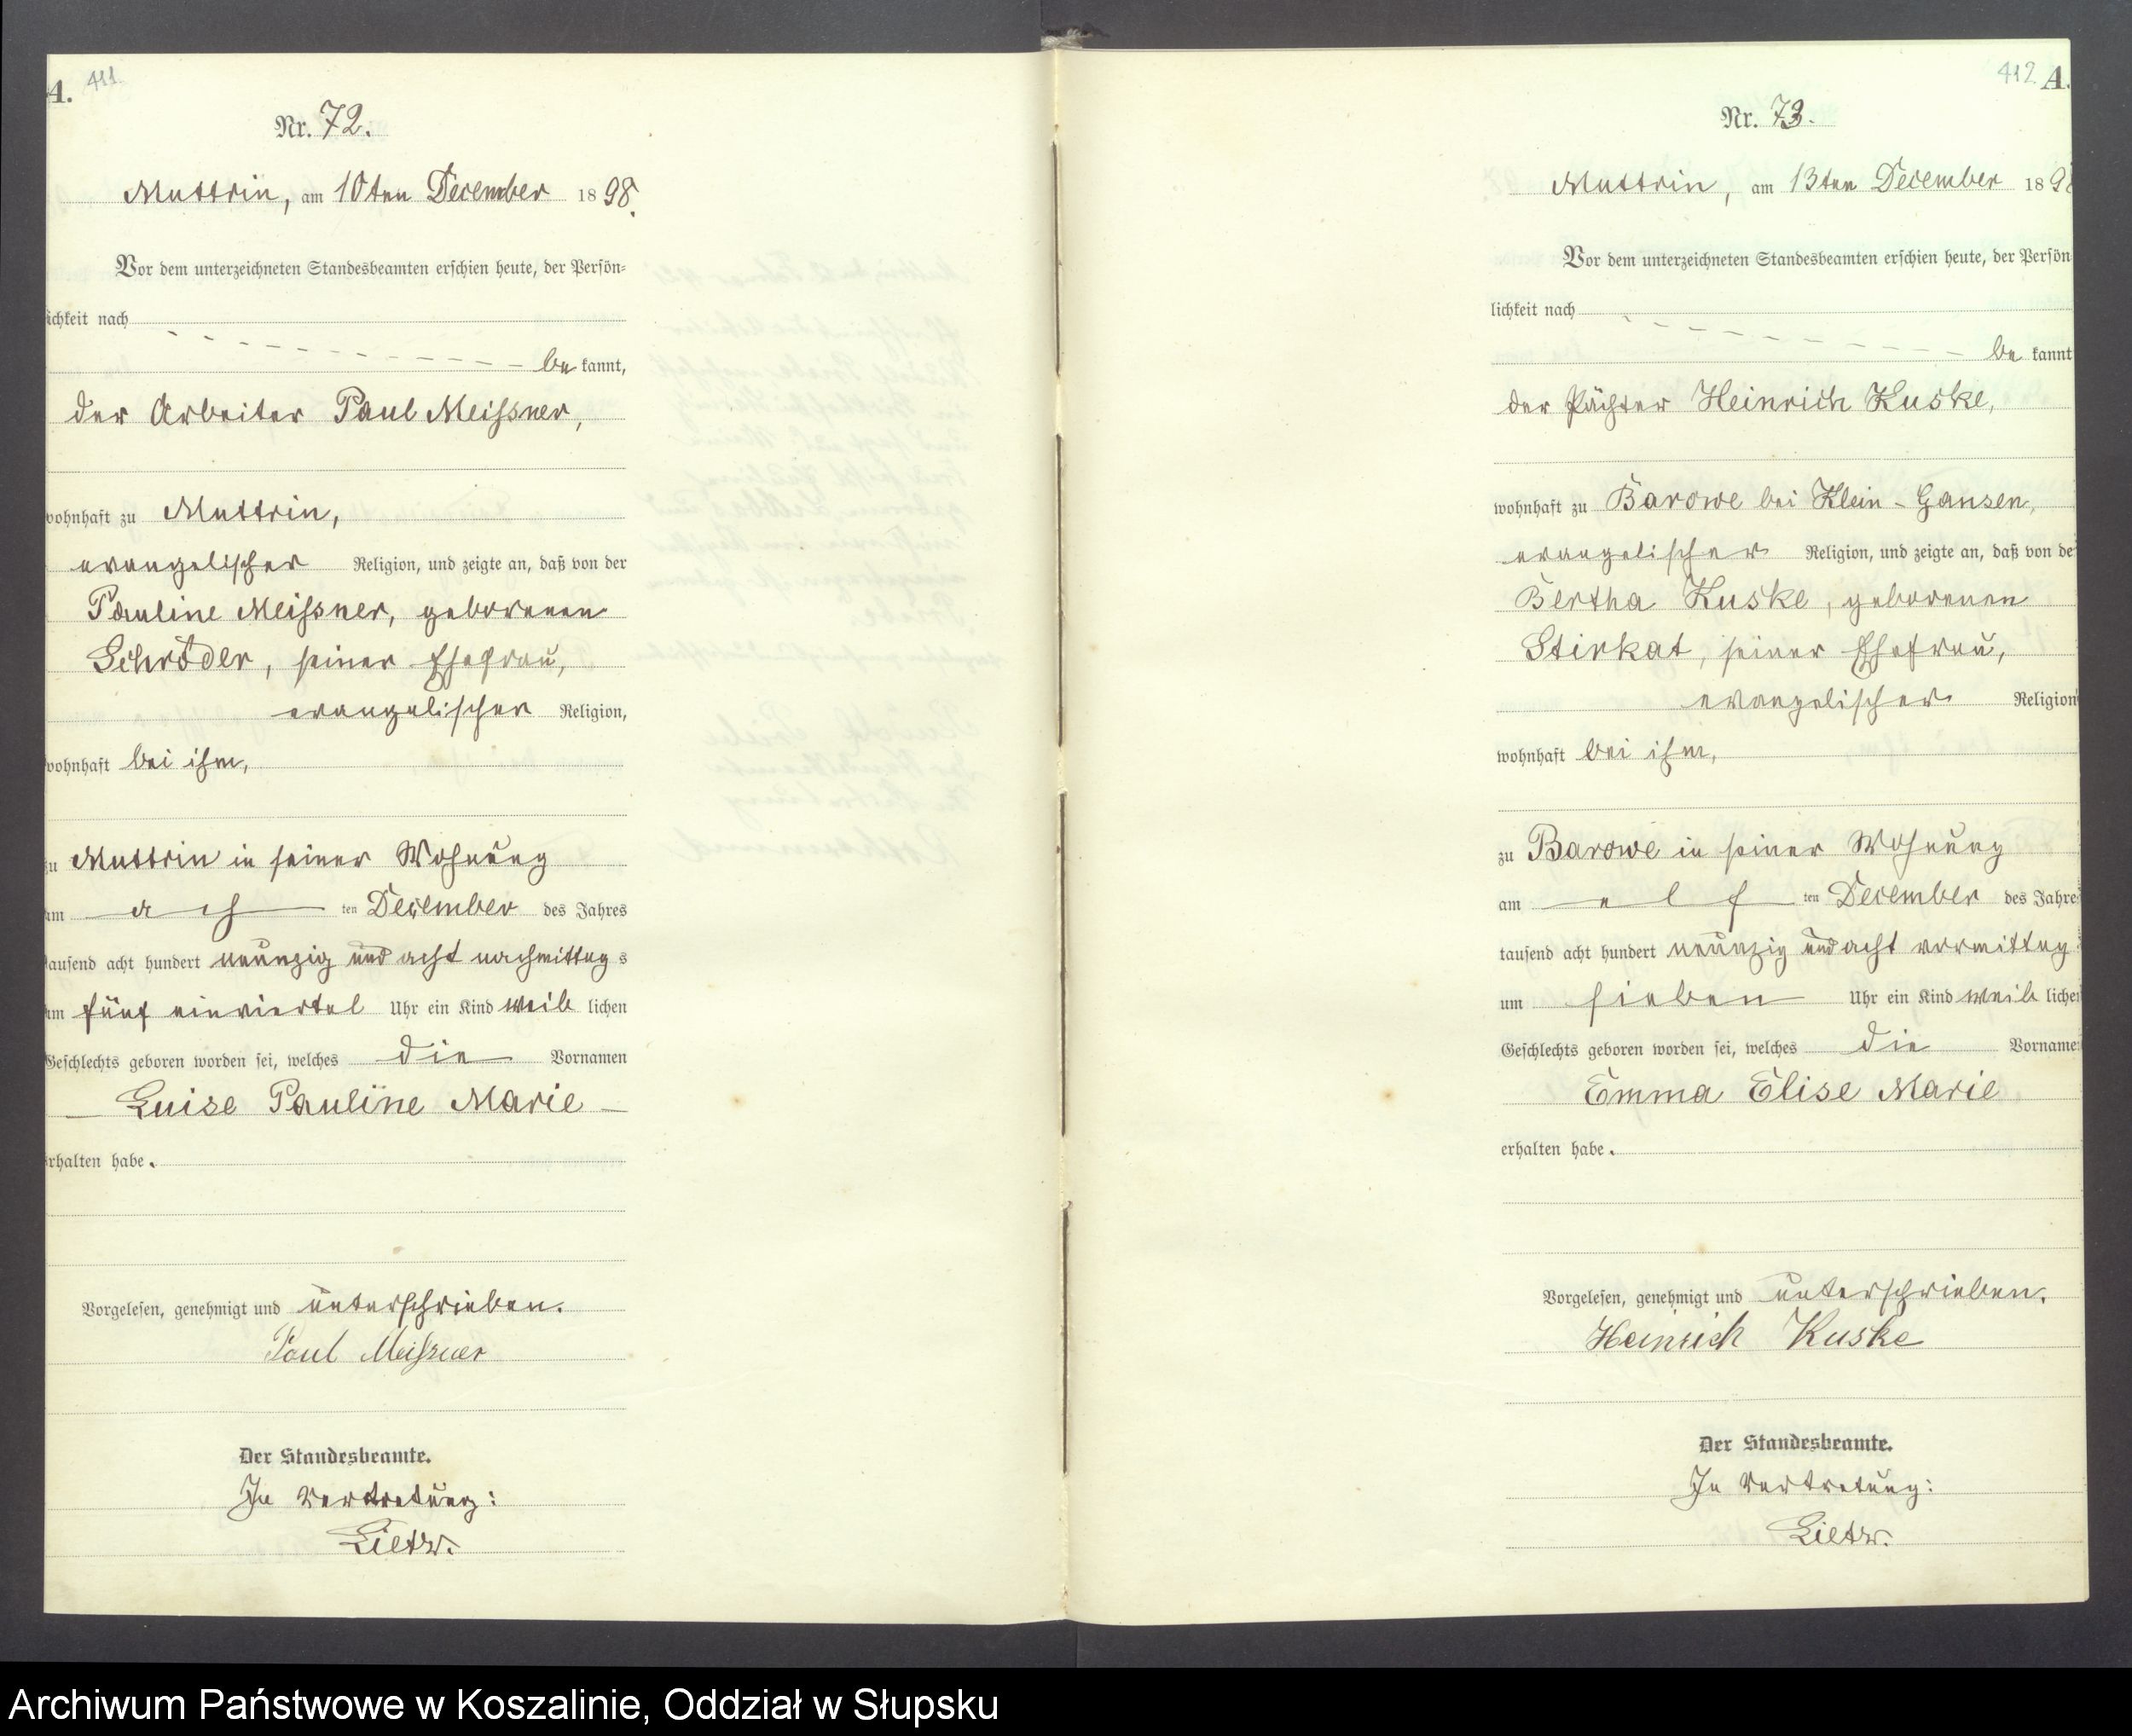 A. 411
Nr. 72.
Muttrin, am 10ten December 1898.
Vor dem unterzeichneten Standesbeamten erschien heute, der Persön-
ichkeit nach
be kannt,
der Arbeiter Paul Meißner,
wohnhaft zu Muttrin,
evangelischer Religion, und zeigte an, daß von der
Pauline Meißner, geborenen
Schröder, seiner Ehefrau,
evangelischer Religion,
wohnhaft bei ihm,
zu Muttrin in seiner Wohnung
am ach ten December des Jahres
tausend acht hundert neunzig und acht nachmittag s
um fünf einviertel Uhr ein Kind weib lichen
Geschlechts geboren worden sei, welches die Vornamen
Luise Pauline Marie
erhalten habe.
Vorgelesen, genehmigt und unterschrieben.
Paul Meißner
Der Standesbeamte.
In Vertretung:
Lietz.
412 A.
Nr. 73.
Muttrin, am 13ten December 1898
Vor dem unterzeichneten Standesbeamten erschien heute, der Persön
lichkeit nach
be kannt
der Pächter Heinrich Kuske,
wohnhaft zu Barowe bei Klein-Gansen,
evangelischer Religion, und zeigte an, daß von de
Bertha Kuske, geborenen
Stirkat, seiner Ehefrau,
evangelischer Religion
wohnhaft bei ihm,
zu Barowe in seiner Wohnung
am elf ten December des Jahre
tausend acht hundert neunzig und acht vormittag
um sieben Uhr ein Kind weib liche
Geschlechts geboren worden sei, welches die Vorname
Emma Elise Marie
erhalten habe.
Vorgelesen, genehmigt und unterschrieben.
Heinrich Kuske
Der Standesbeamte.
In Vertretung:
Lietz.
Archiwum Państwowe w Koszalinie, Oddział w Słupsku